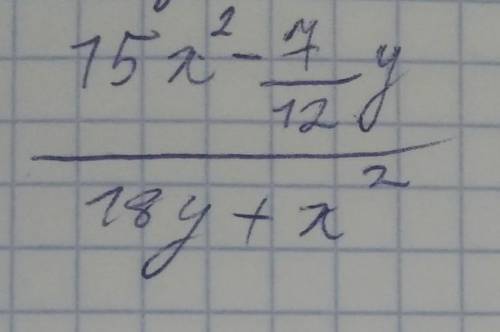 15x² - 7/12 y
18y + x²